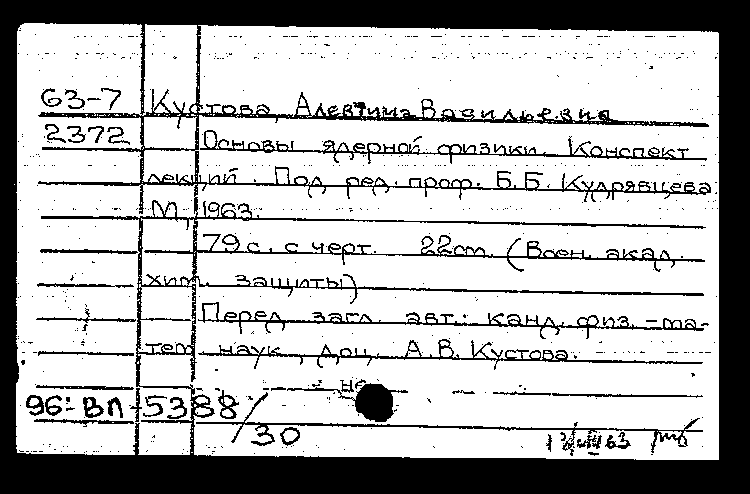 63-7 Кустова, Алевтина Васильевна
2372 Основы ядерной физики. Конспект
лекций. Под ред. проф. Б.Б. Кудрявцева
М., 1963.
79 с. с черт. 22 см. (Воен. акад.
хим. защиты)
Перед загл. авт.: канд. физ.-ма-
тем. наук, доц. А.В. Кустова.
96: ВП-5388/30